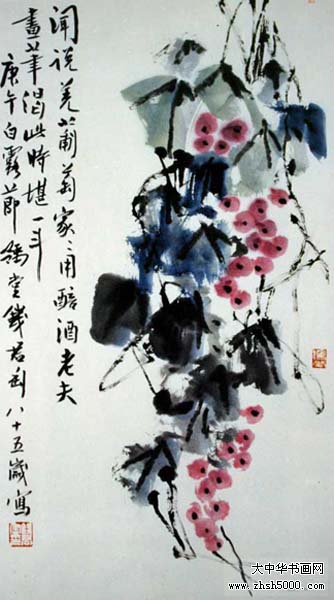 闻说羌葡萄家〻用醅酒老夫
畫筆渴此時堪一斗
庚午白露節豫堂錢君匋八十五歲寫
大中华书画网
www.zhsh5000.com